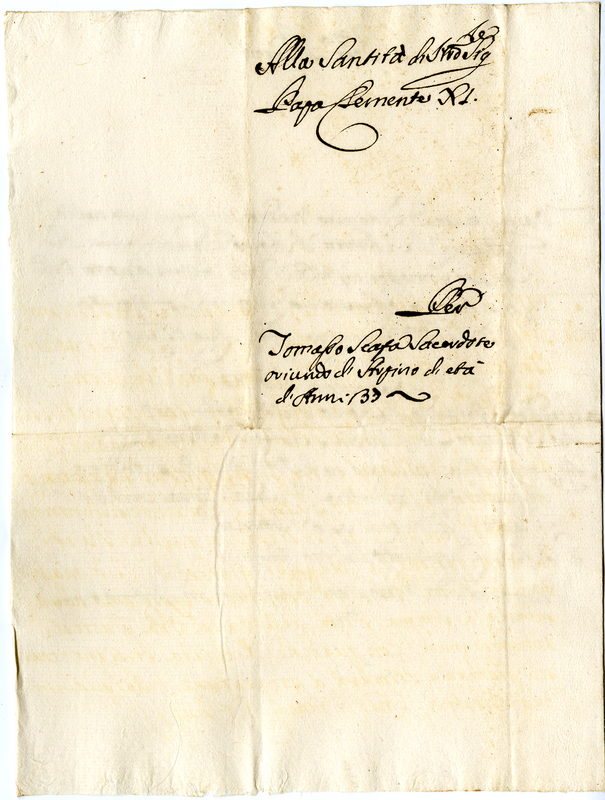 Alla Santità di Nrō Sigre
Papa Clemente XI.
Per
Tomasso Scafa Sacerdote
oriundo di Arpino di età
di Anni 33